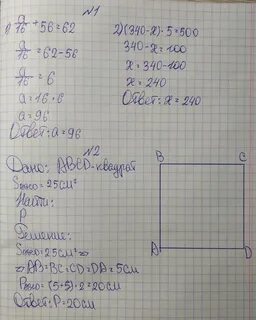 №1
1) a/16 + 56 = 62
a/16 = 62-56
a/16 = 6
a = 16 · 6
a = 96
Ответ: a = 96
2) (340-x) · 5 = 500
340-x = 100
x = 340-100
x = 240
Ответ: x = 240
№2
Дано: ABCD-квадрат
Sквад = 25см²
Найти:
P
Решение:
Sквад = 25см² =>
=> AB=BC=CD=DA= 5см
Pквад = (5+5) · 2 = 20см
Ответ: P = 20см
B C
A D